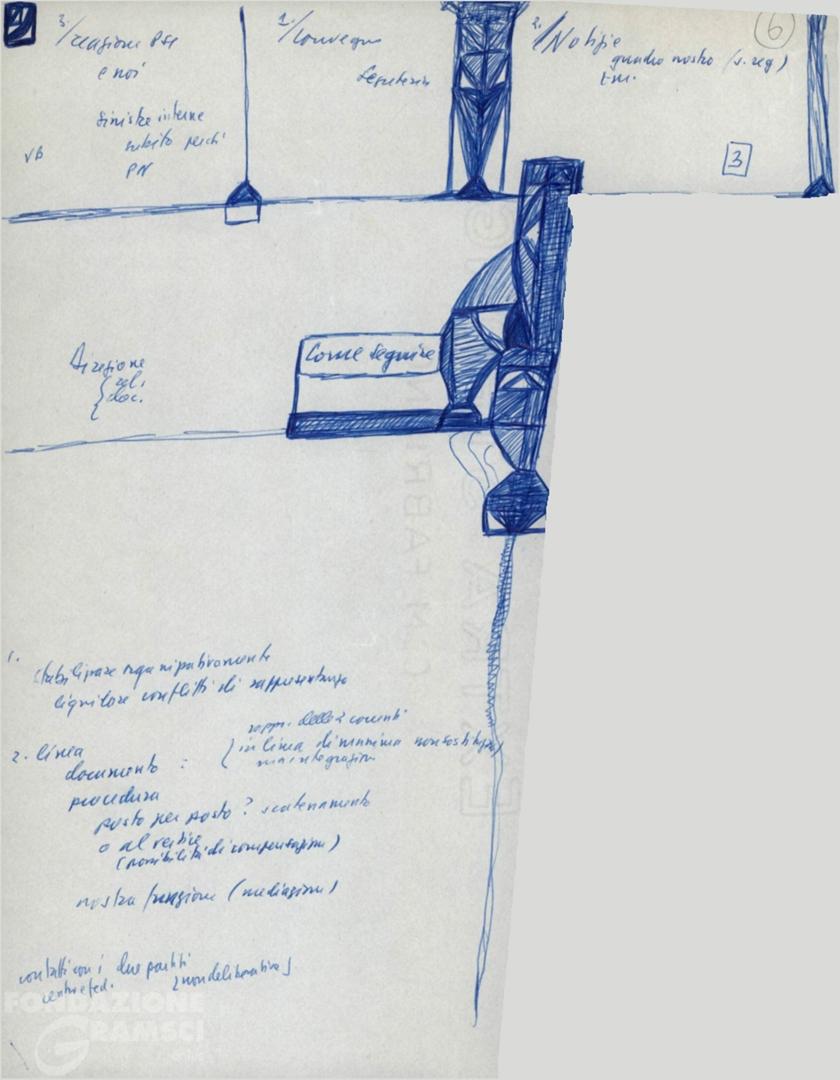 3./ reazione PSI
e noi
sinistre interne
subito perché
PN
1./ Convegno
Segreteria
2./ Notizie
quadro nostro (s. reg)
Em.
6
3
Direzione
{ rel.
{ doc.
Come seguire
1.
stabilizzare organizzativamente
liquidare conflitti di rappresentanza
2. linea
documento :
rappr. delle 2 correnti
in linea di massima non sostituz.
ma integrazioni
procedura
posto per posto? scatenamento
o al vertice
(possibilità di compensazioni)
nostra funzione (mediazioni)
contatti con i due partiti
centro e fed. (non deliberativa)
FONDAZIONE
GRAMSCI